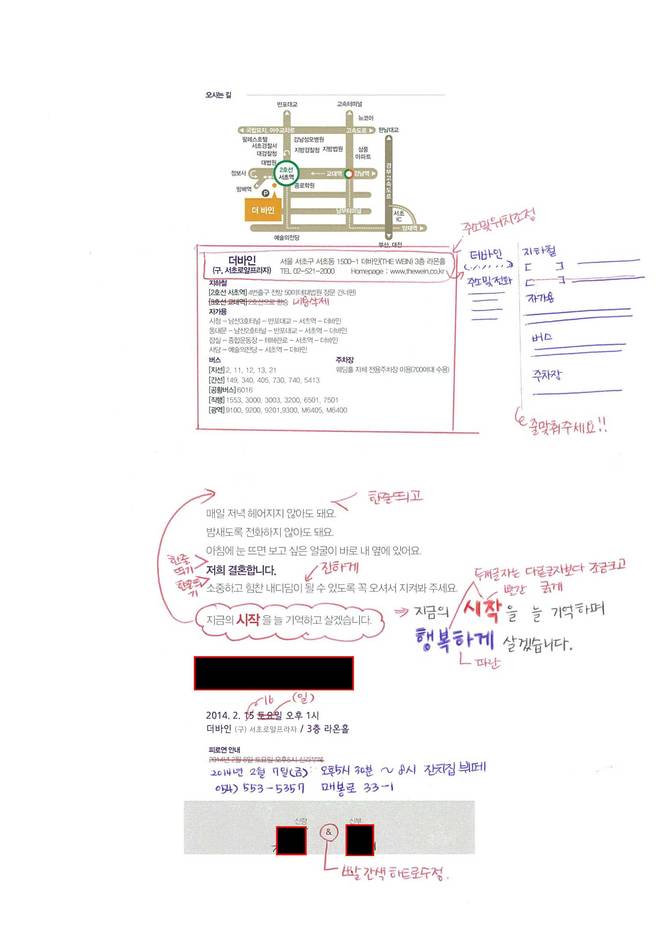 오시는 길
반포대교
고속터미널
뉴코아
국립묘지, 여수교차로
고속도로
한남대교
팔레스호텔
서초경찰서
대검찰청
대법원
강남성모병원
지방검찰청
지방법원
삼풍
아파트
경부고속도로
정보사
2호선
서초역
교대역
강남역
방배역
P
더 바인
남부터미널
서초
IC
양재역
예술의전당
부산, 대전
주소및위치조정
더바인
(구, 서초로얄프라자)
서울 서초구 서초동 1500-1 더바인(THE WEIN) 3층 라온홀
TEL 02-521-2000 Homepage : www.thewein.co.kr
지하철
[2호선 서초역] 4번출구 전방 50미터(대법원 정문 건너편)
[3호선 교대역] 2호선으로 환승 내용삭제
자가용
시청 – 남산3호터널 – 반포대교 – 서초역 – 더바인
동대문 – 남산2호터널 – 반포대교 – 서초역 – 더바인
잠실 – 종합운동장 – 테헤란로 – 서초역 – 더바인
사당 – 예술의전당 – 서초역 – 더바인
버스
주차장
[지선] 2, 11, 12, 13, 21
웨딩홀 자체 전용주차장 이용(700여대 수용)
[간선] 149, 340, 405, 730, 740, 5413
[공항버스] 6016
[직행] 1553, 3000, 3003, 3200, 6501, 7501
[광역] 9100, 9200, 9201,9300, M6405, M6400
더바인
주소및전화
지하철
[ ]
[ ]
자가용
버스
주차장
줄맞춰주세요!!
매일 저녁 헤어지지 않아도 돼요.
한줄띄고
밤새도록 전화하지 않아도 돼요.
아침에 눈 뜨면 보고 싶은 얼굴이 바로 내 옆에 있어요.
한줄
띄기
저희 결혼합니다.
진하게
한줄띄
기
소중하고 힘찬 내디딤이 될 수 있도록 꼭 오셔서 지켜봐 주세요.
지금의 시작을 늘 기억하고 살겠습니다.
두개글자는 다른글자보다 조금크고
빨간 굵게
지금의 시작을 늘 기억하며
행복하게 살겠습니다.
파란
16 (일)
2014. 2. 15 토요일 오후 1시
더바인 (구) 서초로얄프라자 / 3층 라온홀
피로연 안내
2014년 2월 8일 토요일 오후5시 신라부페
2014년 2월 7일(금) 오후5시 30분 ~ 8시 잔치집 뷔페
054) 553-5357 매봉로 33-1
신랑
&
신부
빨간색 하트로수정.